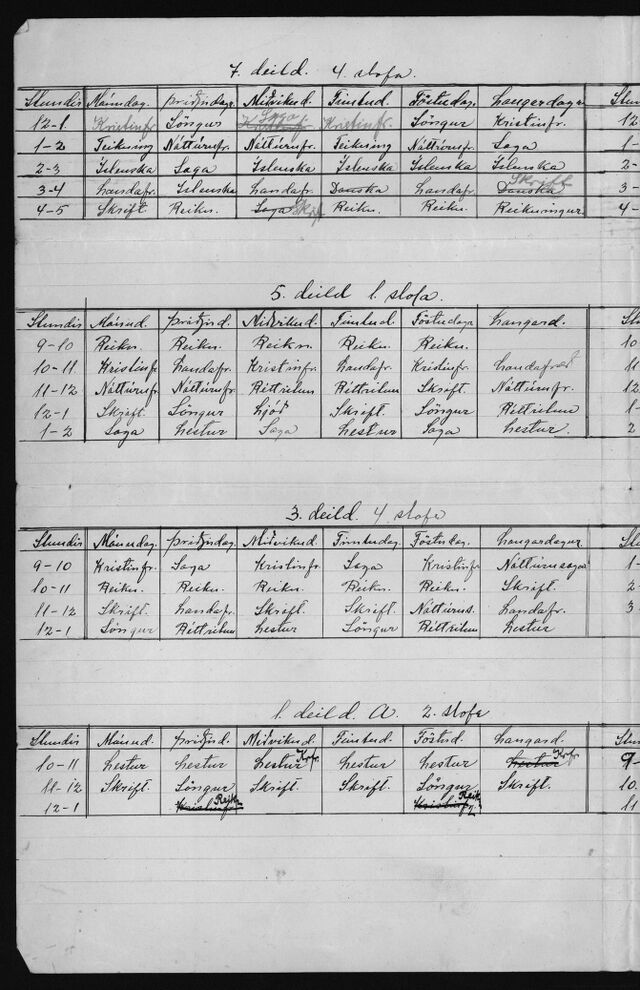 7. deild. 4. stofa.
Stundir Mánudag. Þriðjudagr. Miðvikud. Fimtud. Föstudag. Laugardagr Stun
12-1 Kristinfr. Söngur Saga Kristinfr. Söngur Kristinfr. 12
1-2 Teikning Náttúrufr. Náttúrufr. Teikning Náttúrufr. Saga 1-
2-3 Íslenska Saga Íslenska Íslenska Íslenska Íslenska 2-
3-4 Landafr. Íslenska Landafr. Danska Landafr. Danska Skrift 3-
4-5 Skrift. Reikn. Saga Skrif Reikn. Reikn. Reikningur. 4-
5. deild 1. stofa.
Stundir Mánud. Þriðjud. Miðvikud. Fimtud. Föstudagr Laugard. Stun
9-10 Reikn. Reikn. Reikn. Reikn. Reikn. 10
10-11 Kristinfr Landafr. Kristinfr. Landafr. Kristinfr. Landafr 11
11-12 Náttúrufr. Náttúrufr. Réttritun Réttritun Skrift. Náttúrufr. 12
12-1 Skrift. Söngur Ljóð Skrift. Söngur Réttritun 1
1-2 Saga Lestur Saga Lestur Saga Lestur. 2
3. deild. 4 stofa
Stundir Mánudag. Þriðjudag. Miðvikud. Fimtudag Föstudag. Laugardagur Stun
9-10 Kristinfr. Saga Kristinfr. Saga Kristinfr. Náttúrusaga 1-
10-11 Reikn. Reikn. Reikn. Reikn. Reikn. Skrift. 2-
11-12 Skrift. Landafr. Skrift. Skrift. Náttúrus. Landafr. 3-
12-1 Söngur Réttritun Lestur Söngur Réttritun Lestur
1. deild. A. 2. stofa
Stundir Mánud. Þriðjud. Miðvikud. Fimtud. Föstud. Laugard. Stun
10-11 Lestur Lestur Lestur Krfr. Lestur Lestur Lestur Krfr 9-
11-12 Skrift. Söngur Skrift. Skrift. Söngur Skrift. 10.
12-1 Kristinfr Reikn Kristinfr Reikn 11